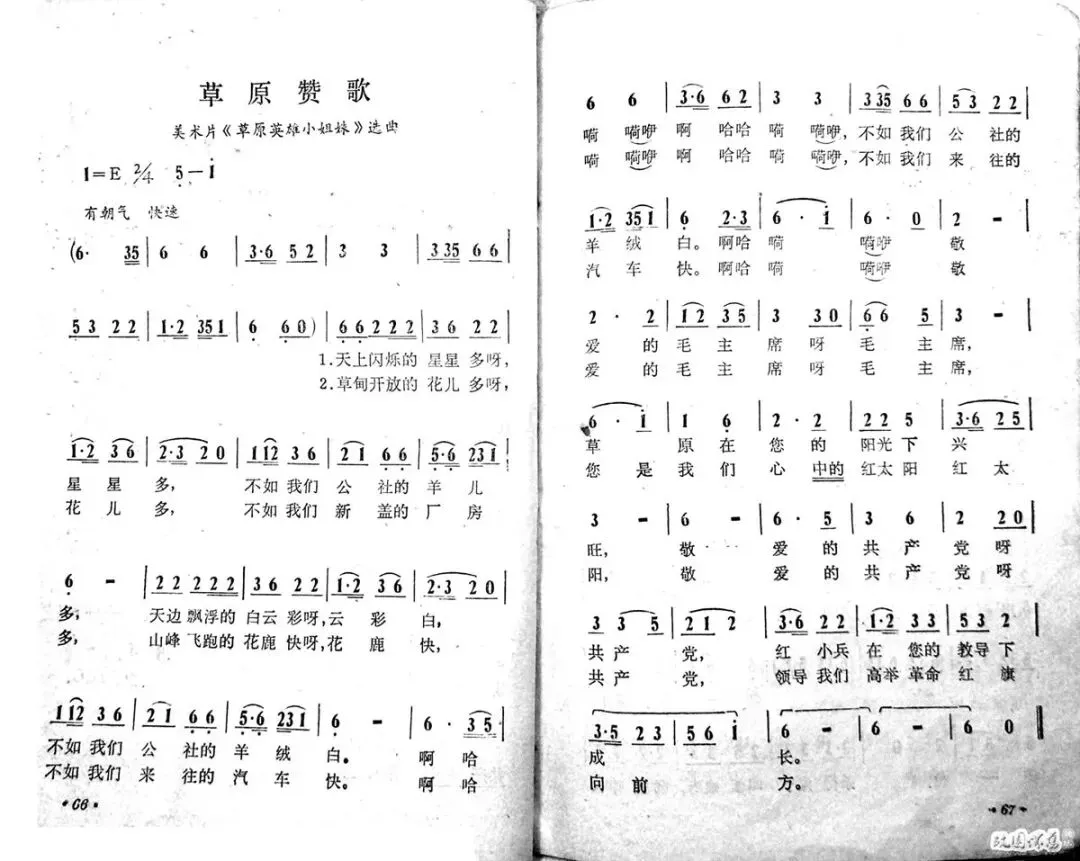 草原赞歌
美术片《草原英雄小姐妹》选曲
1=E 2/4 5—i
有朝气 快速
(6· 35 | 6 6 | 3·6 52 | 3 3 | 335 66 |
53 22 | 1·2 351 | 6 60) | 66 222 | 36 22 |
1.天上闪烁的 星星 多呀,
2.草甸开放的 花儿 多呀,
1·2 36 | 2·3 20 | 112 36 | 21 66 | 5·6 231 |
星 星 多, 不如我们 公 社的 羊 儿
花 儿 多, 不如我们 新 盖的 厂 房
6 - | 22 222 | 36 22 | 1·2 36 | 2·3 20 |
多; 天边 飘浮的 白云 彩呀,云 彩 白,
多; 山峰 飞跑的 花鹿 快呀,花 鹿 快,
112 36 | 21 66 | 5·6 231 | 6 - | 6· 35 |
不如我们 公 社的 羊 绒 白。 啊哈
不如我们 来 往的 汽 车 快。 啊哈
·66·
6 6 | 3·6 62 | 3 3 | 335 66 | 53 22 |
嗬 嗬咿 啊 哈哈 嗬 嗬咿, 不如我们 公 社的
嗬 嗬咿 啊 哈哈 嗬 嗬咿, 不如我们 来 往的
1·2 351 | 6 2·3 | 6 · i | 6· 0 | 2 - |
羊 绒 白。啊哈 嗬 嗬咿 敬
汽 车 快。啊哈 嗬 嗬咿 敬
2 · 2 | 12 35 | 3 30 | 66 5 | 3 - |
爱 的 毛 主 席 呀 毛 主 席,
爱 的 毛 主 席 呀 毛 主 席,
6 · i | 1 6 | 2 · 2 | 22 5 | 3·6 25 |
草 原 在 您 的 阳光 下 兴
您 是 我 们 心 中的 红太 阳 红 太
3 - | 6 - | 6 · 5 | 3 6 | 2 20 |
旺, 敬 爱 的 共 产 党 呀
阳, 敬 爱 的 共 产 党 呀
3 3 5 | 2 1 2 | 3·6 22 | 1·2 33 | 53 2 |
共 产 党, 红 小兵 在 您的 教导 下
共 产 党, 领导 我们 高举 革命 红 旗
3·5 23 | 56 i | 6 - | 6 - | 6 0 ‖
成 长。
向 前 方。
·67·